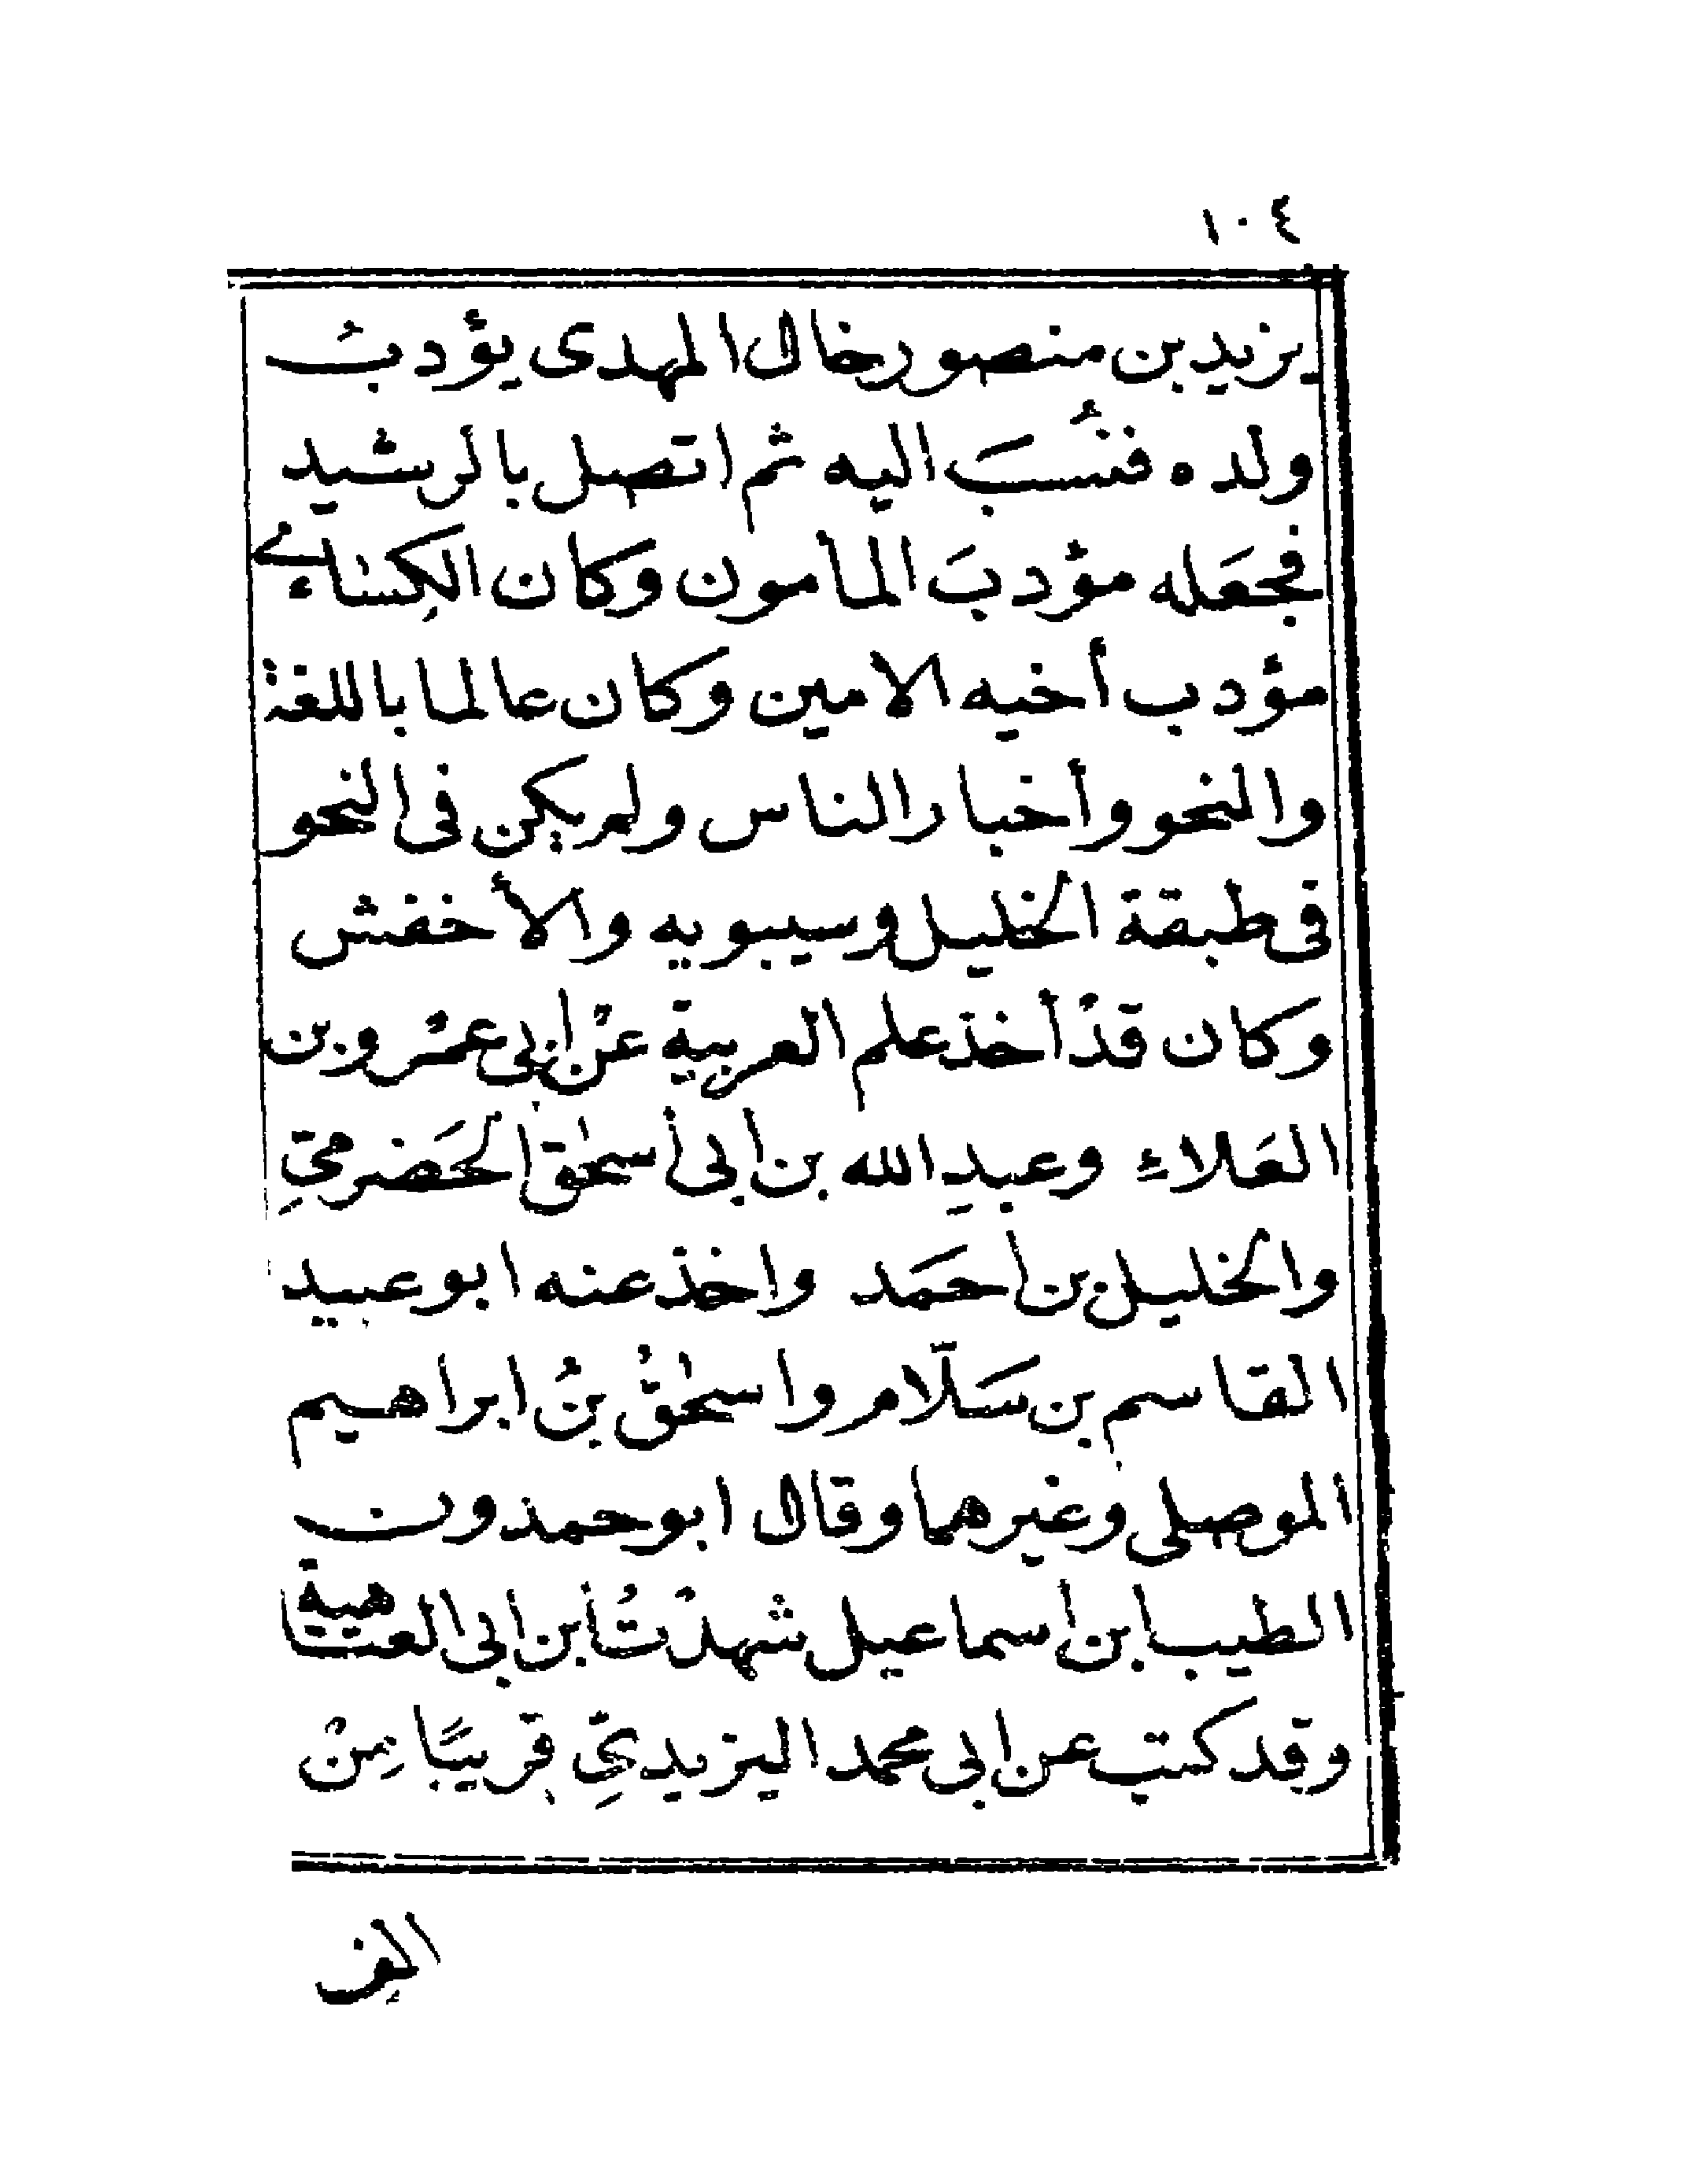 ١٠٤
يزيد بن منصور خال المهدى يؤدبُ
ولده فنُسبَ اليه ثم اتصل بالرشيد
فجعَله مؤدبَ المأمون وكان الكِسَاءى
مؤدب أخيه الامين وكان عالما باللغة
والنحو وأخبار الناس ولم يكن فى النحو
فى طبقة الخليل وسيبويه والأخفش
وكان قدْ أخذ علم العربية عنْ ابى عمْرو بن
العَلاءِ وعبدِ الله بن ابى أسحٰق الحَضرمىِّ
والخليل بن احمَد واخذ عنه ابو عبيد
القاسم بن سَلّام واسحٰقُ بنُ ابراهيم
الموصلى وغيرهما وقال ابو حمدون
الطيب ابن اسماعيل شهدْتُ ابن ابى العتاهية
وقد كتب عن ابى محمد اليزيدىِّ قريبًا مِنْ
الف